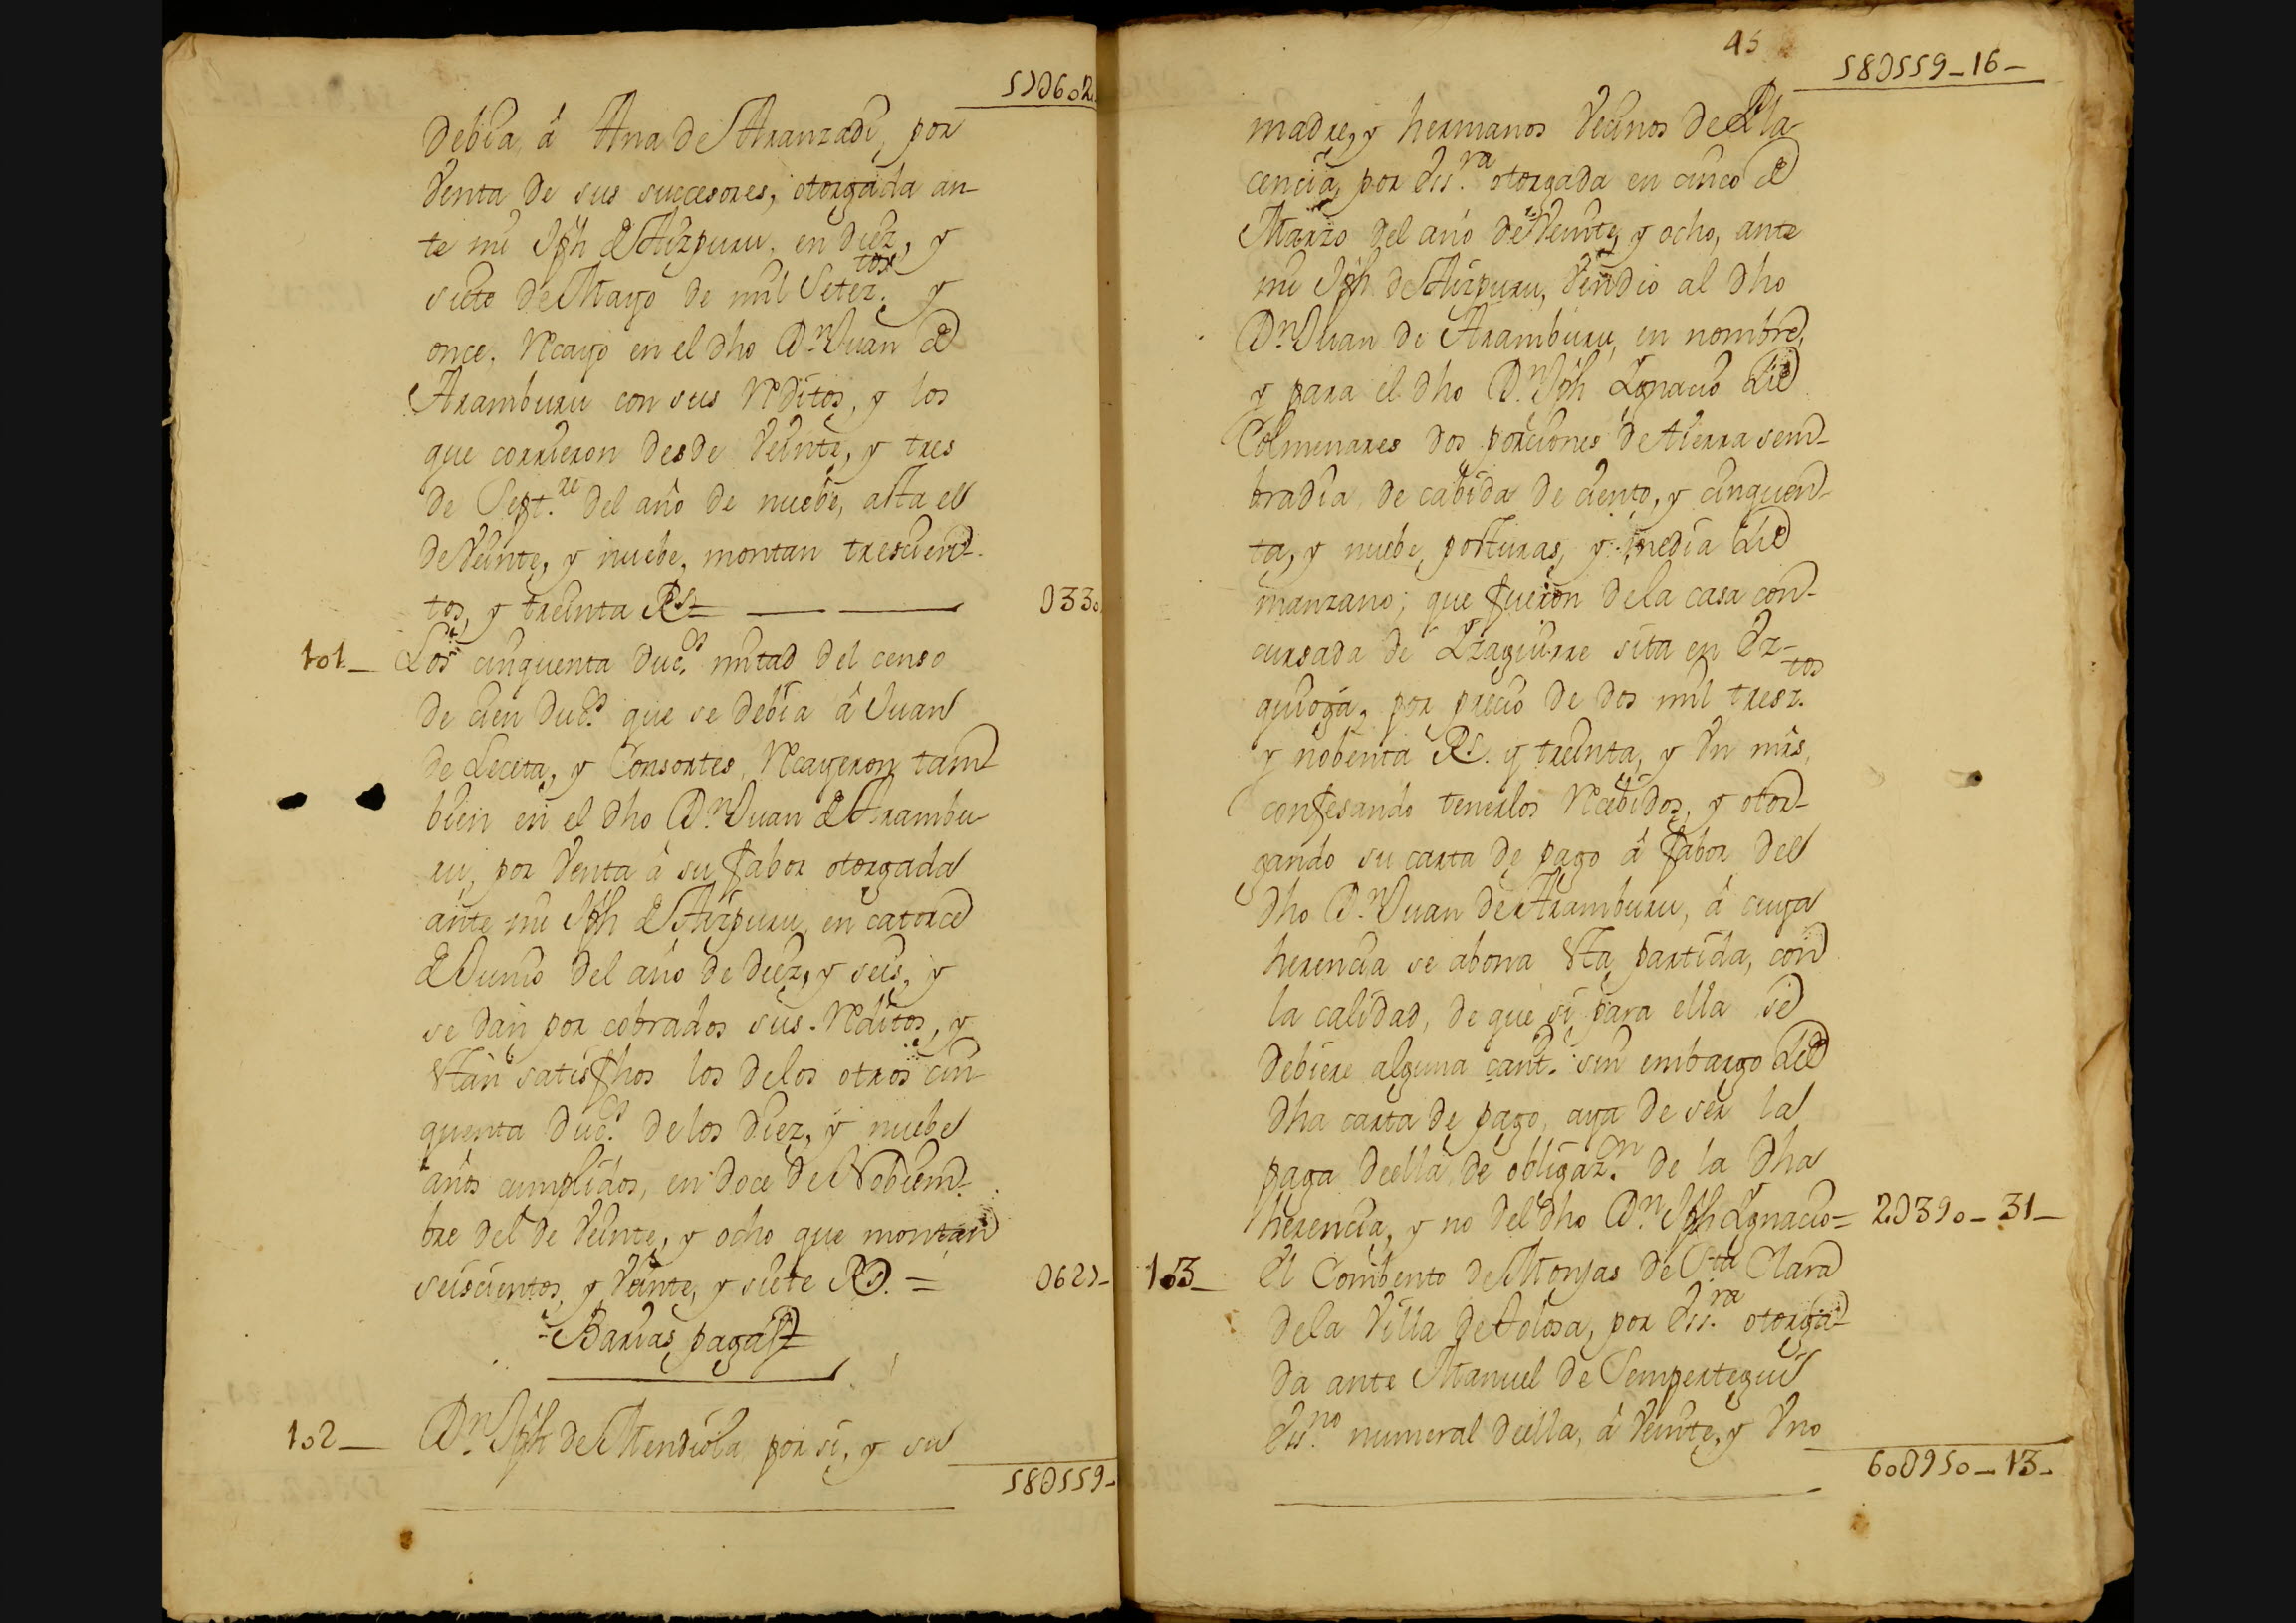 57U602
debia, â Ana de Aranzadi, por
Venta de sus succesores, otorgada an-
te mi Jph de Aizpuru, en diez, y
siete de Mayo de mil Setez.tos y
once. Recayo en el dho Dn. Juan de
Aramburu con sus Reditos, y los
que corrieron desde Veinte, y tres
de Sept.re del año de nuebe, asta el
de Veinte, y nuebe, montan trescien-
tos, y treinta Rs= U330
101_ Los cinquenta duc.s mitad del censo
de cien duc.s que se debia â Juan
de Leceta, y Consortes, Recayeron tam
bien en el dho Dn. Juan de Arambu-
ru, por Venta â su fabor otorgada
ante mi Jph de Aizpuru, en catorce
de Junio del año de diez, y seis, y
se dan por cobrados sus Reditos, y
Estan satisfhos los delos otros cin
quenta duc.s de los diez, y nuebe
años cumplidos, en doce de Nobiem-
bre del de Veinte, y ocho que montan
seiscientos, y Veinte, y siete Rs. = U627-
Barias pagas
102_ Dn. Jph de Mendiola por si, y su
58U559-
45
58U559-16-
madre, y hermanos Vecinos de Pla-
cencia, por Ess.ra otorgada en cinco de
Marzo del año de Veinte, y ocho, ante
mi Jph de Aizpuru, Vendio al dho
Dn. Juan de Aramburu, en nombre,
y para el dho Dn. Jph Ygnacio de
Colmenares dos porciones de tierra sem-
bradia, de cabida de ciento, y cinquen-
ta, y nuebe, posturas, y media de
manzano; que fueron dela casa con-
cursada de Yzaguirre sita en Ez-
quioga, por precio de dos mil tresz.tos
y nobenta Rs. y treinta, y Un mrs,
confesando tenerlos Recibidos, y otor-
gando su carta de pago â fabor del
dho Dn. Juan de Aramburu, â cuya
herencia se abona Esta partida, con
la calidad, de que si para ella se
debiere alguna cant. sin embargo de
dha carta de pago, aya de ser la
paga deella de obligaz.on de la dha
herencia, y no del dho Dn. Jph Ygnacio= 2U390-31-
103_ El Combento de Monjas de Sta. Clara
dela Villa de Tolosa, por Ess.ra otorga-
da ante Manuel de Sempertegui
Ess.no numeral deella, â Veinte, y Uno
60U950-13-